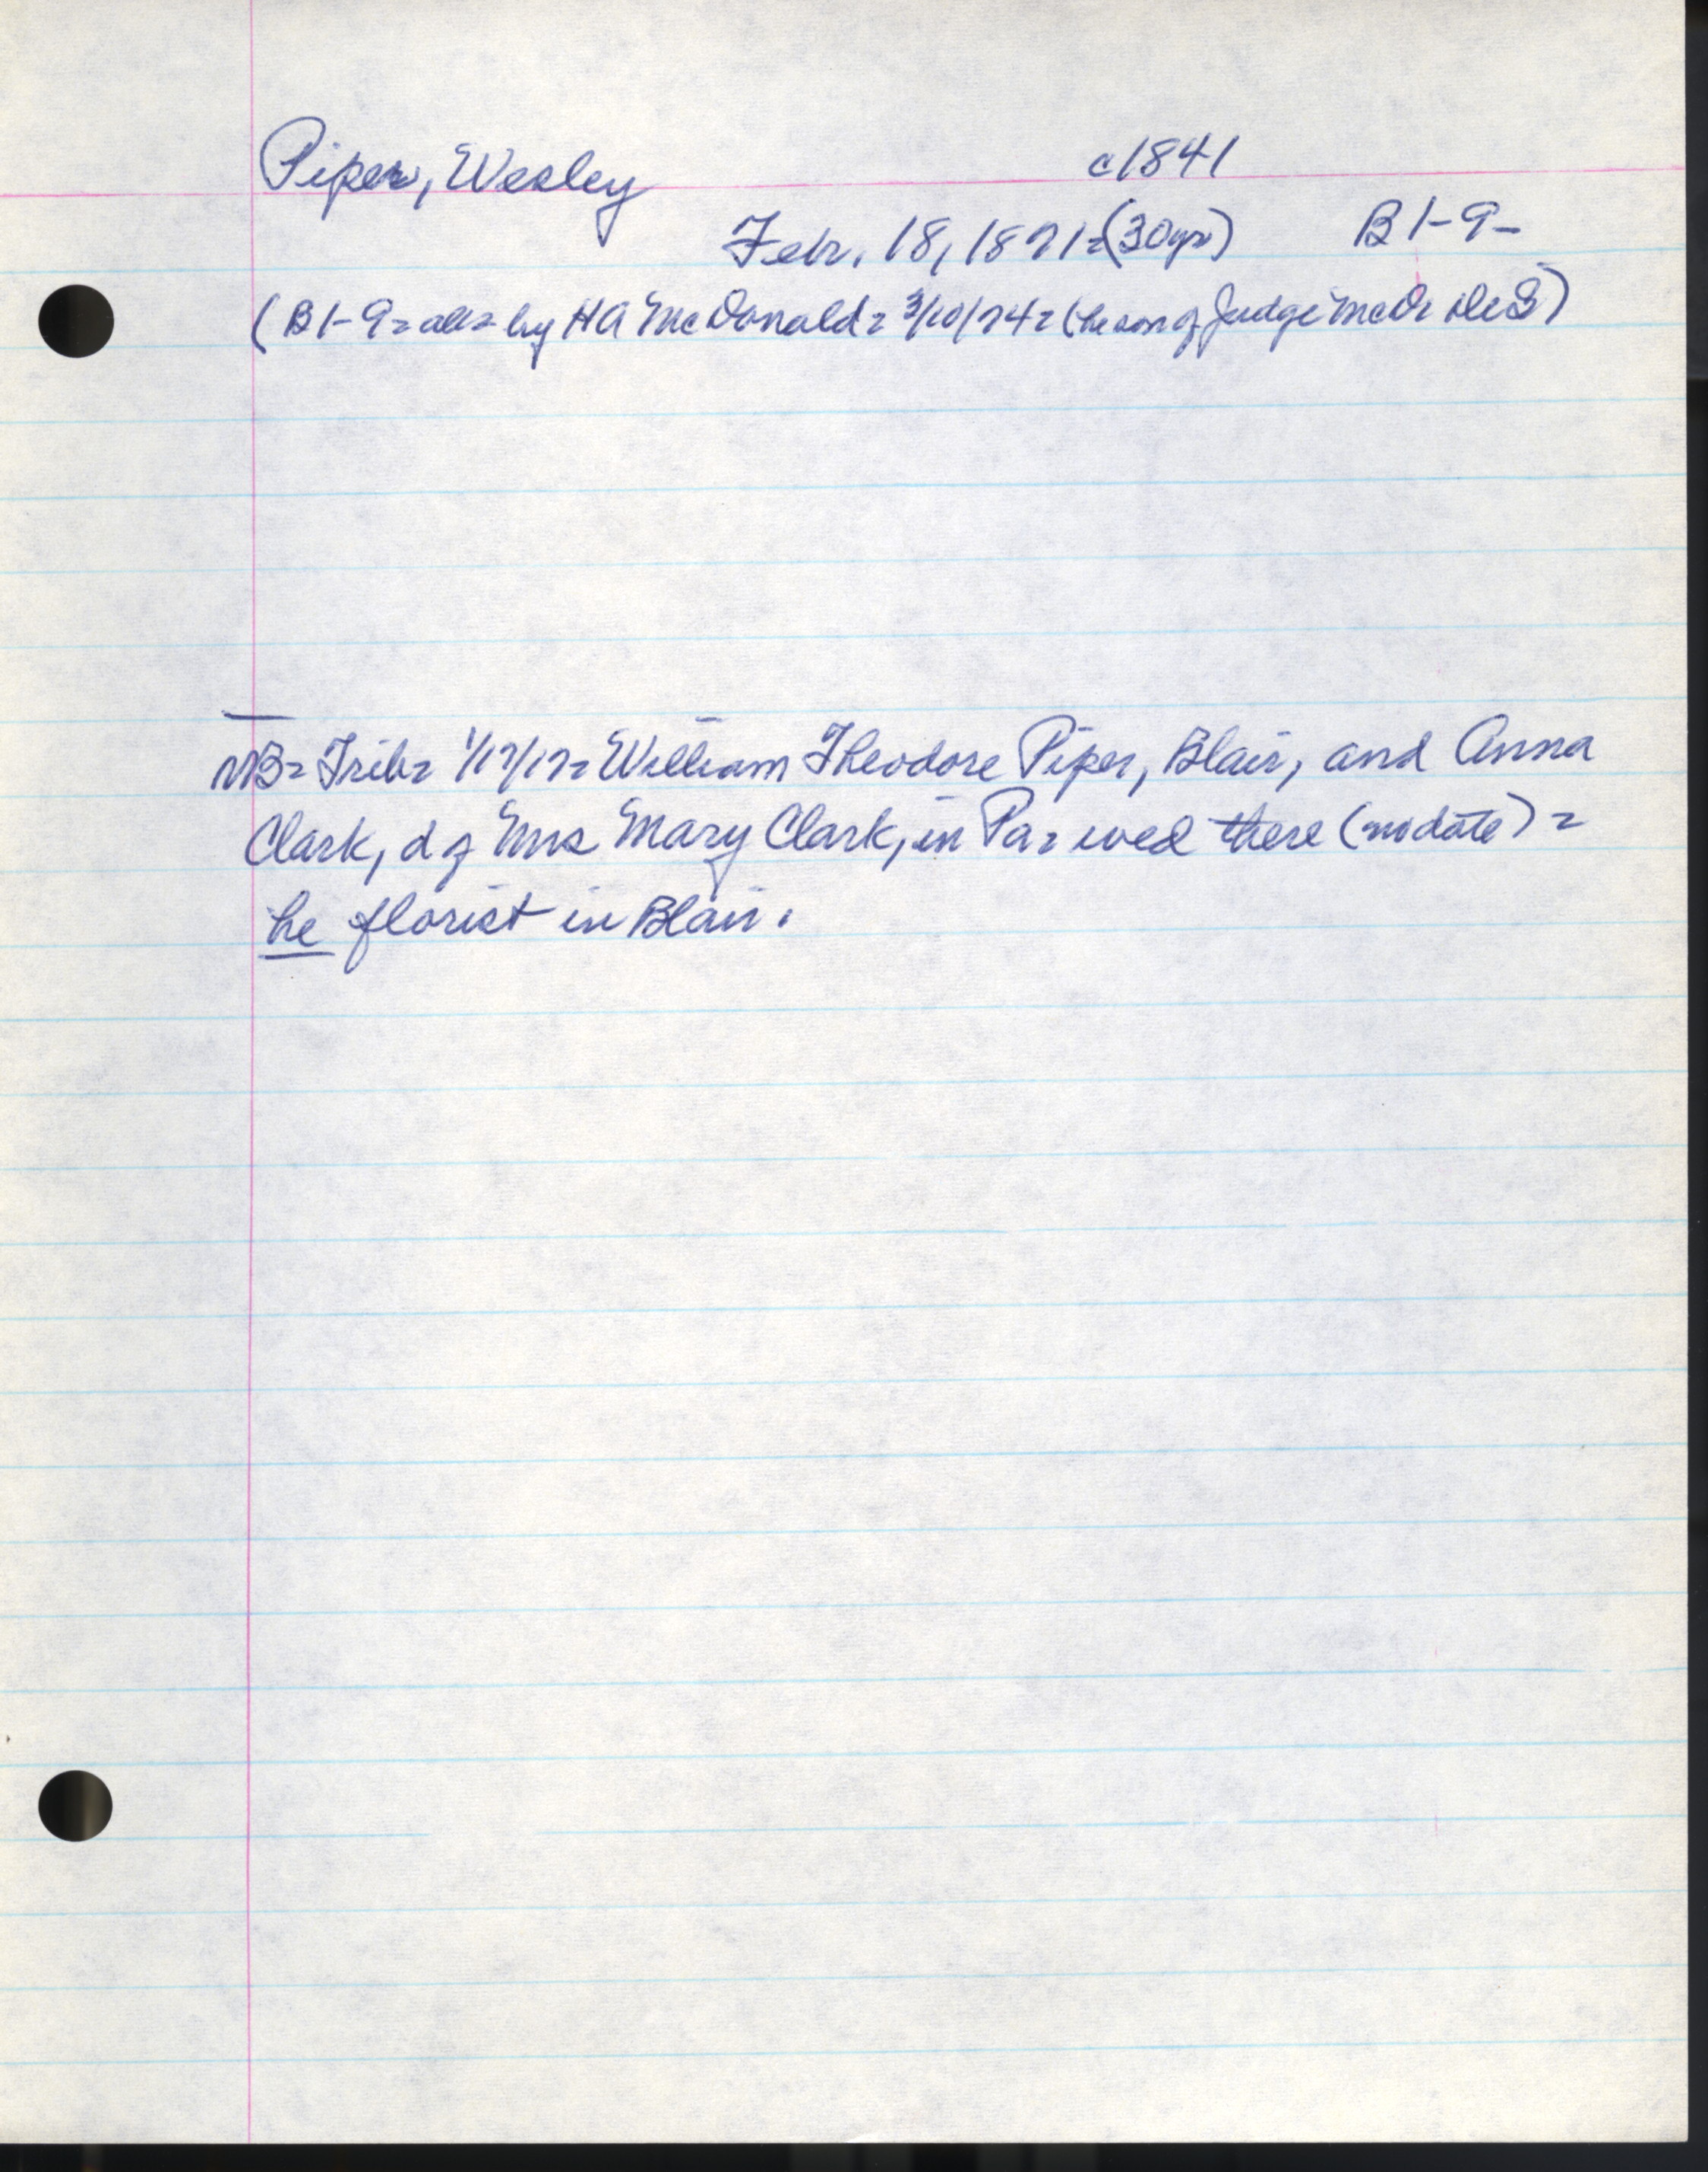 Piper, Wesley c1841
Febr. 18, 1871=(30yr) B1-9-
(B1-9= all= by HA McDonald= 3/10/74= (he son of Judge McD)
NB= Trib= 1/17/17= William Theodore Piper, Blair, and Anna
Clark, d of Mrs Mary Clark, in Pa= wed there (no date) =
he florist in Blair.